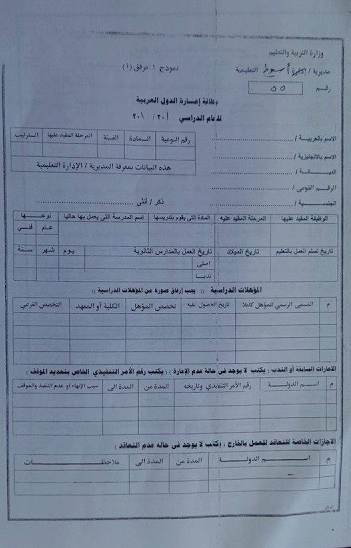 وزارة التربية والتعليم
مديرية / أسيوط التعليمية
نموذج ١ مرفق (أ)
رقم ٥٥
بطاقة إعارة الدول العربية
للعام الدراسي ٢٠١ / ٢٠١
رقم النوعية المادة الفئة المرحلة المقيد عليها الترتيب
هذه البيانات بمعرفة المديرية / الإدارة التعليمية
الاسم بالعربية /
الاسم بالانجليزية /
الديانة /
الرقم القومي /
الجنسية / ذكر / أنثى
الوظيفة المقيد عليها المرحلة المقيد عليه المادة التي يقوم بتدريسها اسم المدرسة التي يعمل بها حاليا نوعها
عام فني
تاريخ تسلم العمل بالتعليم تاريخ الميلاد تاريخ العمل بالمدارس الثانوية يوم شهر سنة
أصلي
ندبا
المؤهلات الدراسية :: يجب إرفاق صورة من المؤهلات الدراسية ::
م المسمى الرسمي للمؤهل كاملا تاريخ الحصول عليه تخصص المؤهل الكلية أو المعهد التخصص الفرعي
الاعارات السابقة أو الندب : يكتب لا يوجد في حالة عدم الإعارة : ويكتب رقم الأمر التنفيذي الخاص بتحديد الموقف :
م اسم الدولة رقم الأمر التنفيذي وتاريخه المدة من المدة الى سبب الإنهاء أو عدم التنفيذ والموقف
الاجازات الخاصة للتعاقد للعمل بالخارج : ويكتب لا يوجد في حالة عدم التعاقد :
م اسم الدولة المدة من المدة الى ملاحظات